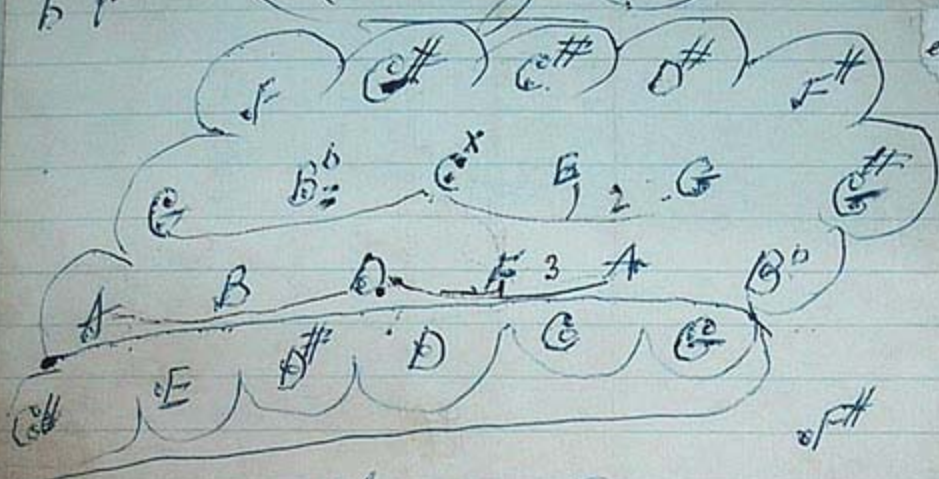 F C# C# D# F#
G Bb C E G G#
A B D F 3 A Bb
2
C# E D# D C G
F#